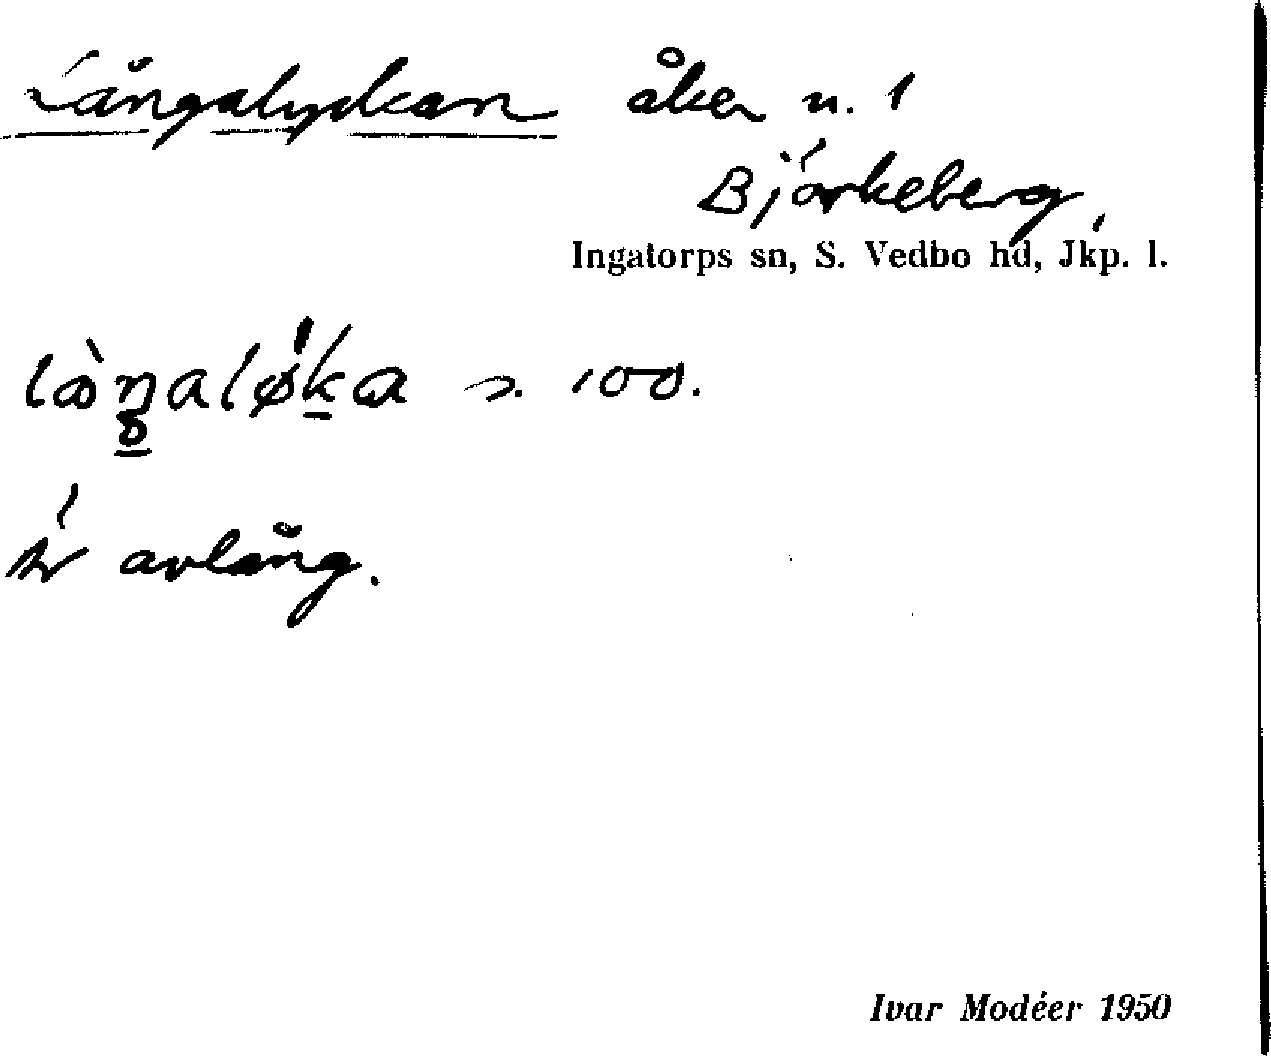 Långalyckan åker n. 1
Björkeberg,
Ingatorps sn, S. Vedbo hd, Jkp. l.
100.
Är avlång.
Ivar Modéer 1950